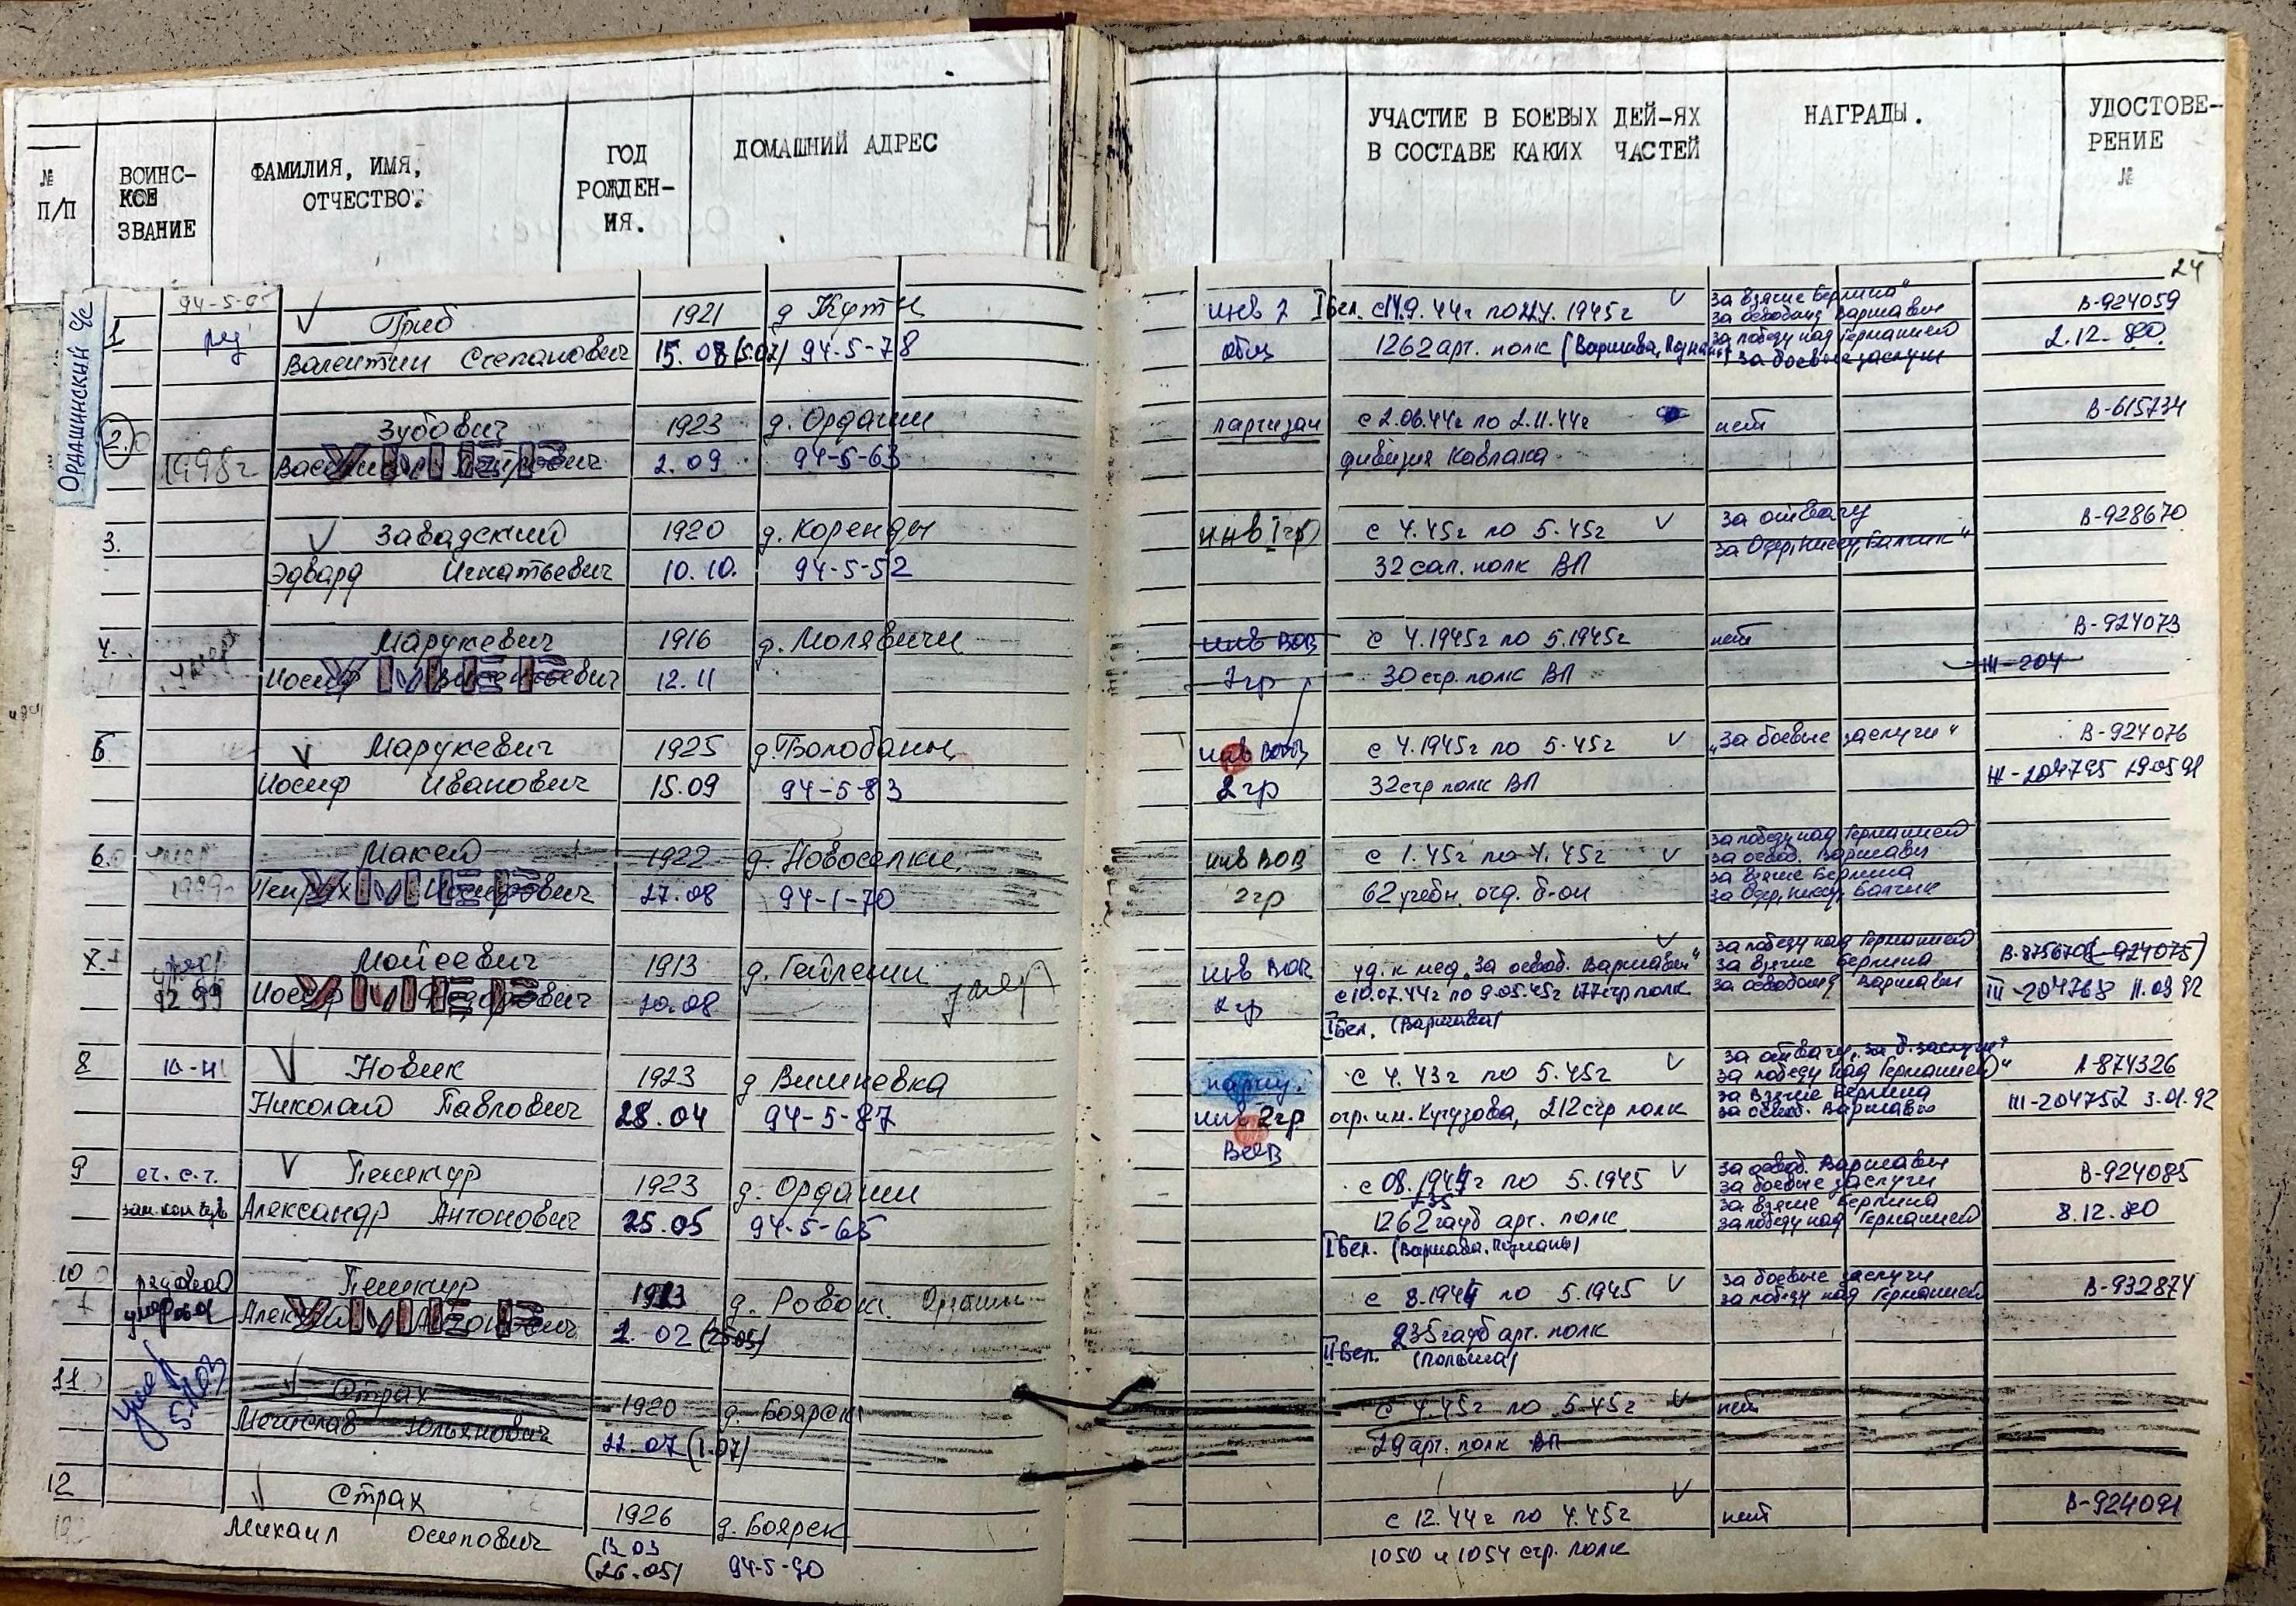 № П/П
ВОИНС-КОЕ ЗВАНИЕ
ФАМИЛИЯ, ИМЯ, ОТЧЕСТВО.
ГОД РОЖДЕН-ИЯ.
ДОМАШНИЙ АДРЕС
УЧАСТИЕ В БОЕВЫХ ДЕЙ-ЯХ
В СОСТАВЕ КАКИХ ЧАСТЕЙ
НАГРАДЫ.
УДОСТОВЕ-РЕНИЕ №
24
ОРДАШИНСКИЙ с/с
94-5-95
1 Гриб 1921 д Кути инв 2 I бел. с 14.9.44г по 1945г за взятие Берлина" В-924059
за освобожд Варшавы
ряд Валентин Степанович 15.08 (5.07) 94-5-78 общ 1262 арт. полк (Варшава, за победу над Германией 2.12.80.
за боевые заслуги
2. Зубович 1923 д. Ордаши партизан с 2.06.44г по 2.11.44г нет В-615734
1998г УМЕР 2.09 94-5-63 дивизия Кавпака
3. Завадский 1920 д. Коренды инв I гр с 4.45г по 5.45г за отвагу В-928670
за Одер, Нисса, Балтик"
Эдвард Игнатьевич 10.10. 94-5-52 32 сап. полк ВП
4. Марукевич 1916 д. Молявичи инв ВОВ с 4.1945г по 5.1945г нет В-924073
умер Иосиф УМЕР 12.11 гр 30 стр. полк ВП III-204
5 Марукевич 1925 д. Волобаны инв ВОВ с 4.1945г по 5.45г „За боевые заслуги" В-924076
Иосиф Иванович 15.09 94-5-83 2 гр 32 стр полк ВП III-204795 19.05 91
6. умер Макей 1922 д. Новоселки инв ВОВ с 1.45г по 4.45г за победу над Германией
за освоб. Варшавы
1999г УМЕР Иосифович 27.08 94-1-70 2гр 62 учебн. отд. б-он за взятие Берлина
за Одер, Нису, Балтик
7. умер Мойсеевич 1913 д. Гейлеши умер инв ВОВ уд. к мед „За освоб. Варшавы" за победу над Германией В.875670 (-924075)
за взятие Берлина
12 99 Иосиф УМЕР 2гр с 10.07.44г по 9.05.45г 177 стр полк за освобожд Варшавы III-204768 11.09 92
I Бел. (Варшава)
8 Новик 1923 д Вишневка парти. с 4.43г по 5.45г за отвагу, за б. заслуги" А-874326
за победу над Германией"
Николай Павлович 28.04 94-5-87 инв 2гр отр. им. Кутузова, 212 стр полк за взятие Берлина III-204752 3.01.92
за освоб. Варшавы
9 ст. с-т. Пешкур 1923 д. Ордаши с 08.1944г по 5.1945 за освоб. Варшавы В-924085
за боевые заслуги
Александр Антонович 25.05 94-5-65 1262 гауб арт. полк за взятие Берлина 8.12.80
за победу над Германией
I бел. (Варшава, Познань)
10 рядовой Пешкур 1913 д. Ровок с 8.1944 по 5.1945 за боевые заслуги В-932874
за победу над Германией
УМЕР 2.02 235 гауб арт. полк
II Бел. (Польша)
11. умер 5.11.03 Страх 1920 д. Боярск с 4.45г по 5.45г нет
Мечислав Юльянович 22.07 (1.07) 29 арт. полк ВП
12 Страх 1926 д. Боярск с 12.44г по 4.45г нет В-924091
Михаил Осипович 13 03 (26.05) 94-5-90 1050 и 1054 стр. полк